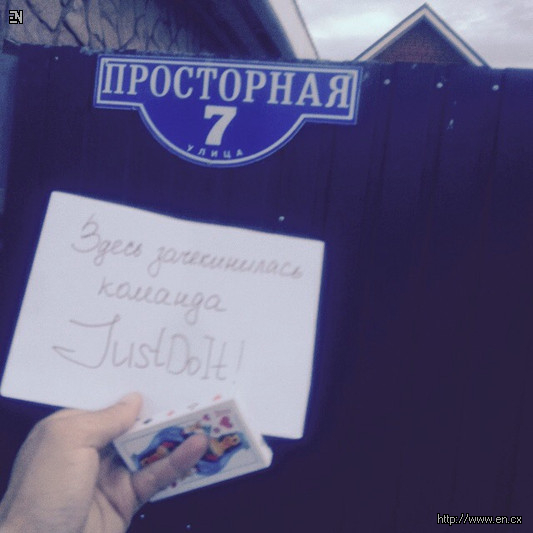 EN
ПРОСТОРНАЯ
7
УЛИЦА
Здесь зачекинилась
команда
JustDoIt!
http://www.en.cx